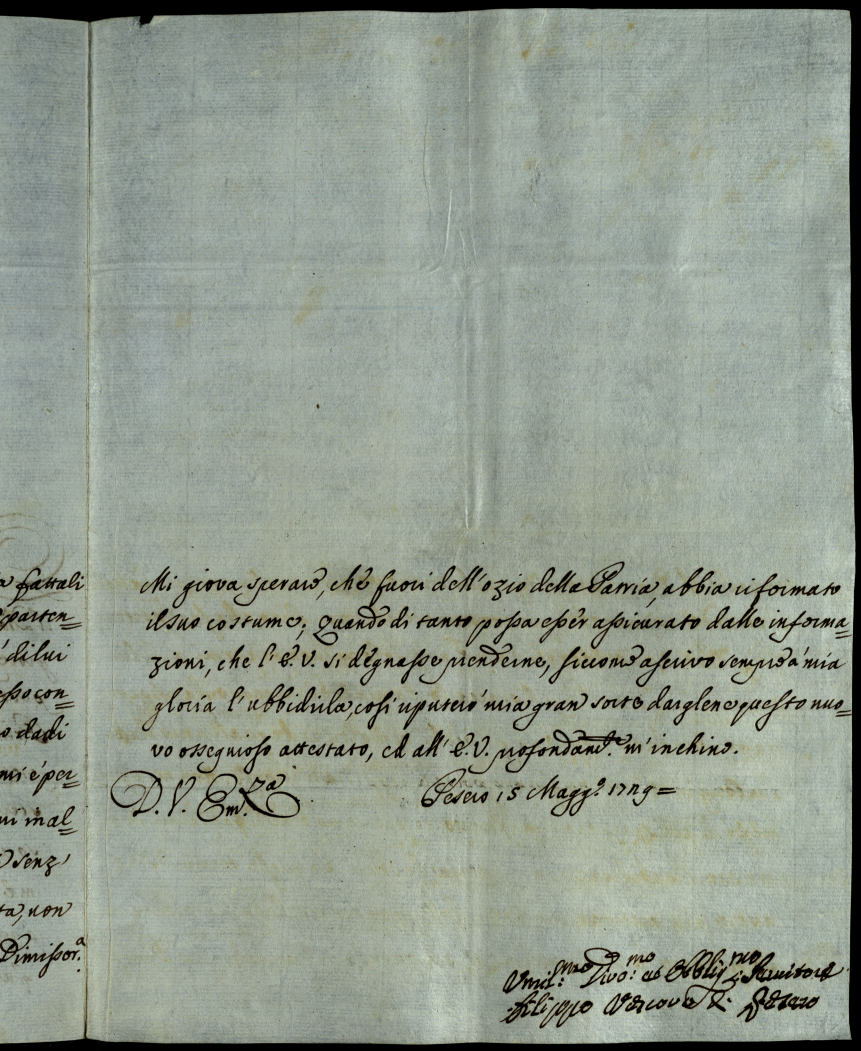 a fattali
parten=
di lui
esso con=
o dadi
mi è per=
ui mal=
senz'
ta, non
Dimissor.ª
Mi giova sperare, che fuori dell'ozio della Patria, abbia riformato
il suo costume; quando di tanto possa esser assicurato dalle informa=
zioni, che l'E.V. si degnasse prenderne, siccome ascrivo sempre à mia
gloria l'ubbidirla, così riputerò mia gran sorte dargliene questo nuo=
vo ossequioso attestato, ed all'E.V. profondam.e m'inchino.
D. V. Em.za
Pesero 15 Magg.o 1729=
Umil.mo Divo.mo ed Obblig.mo Servitore
Filippo Vescovo di Pesaro